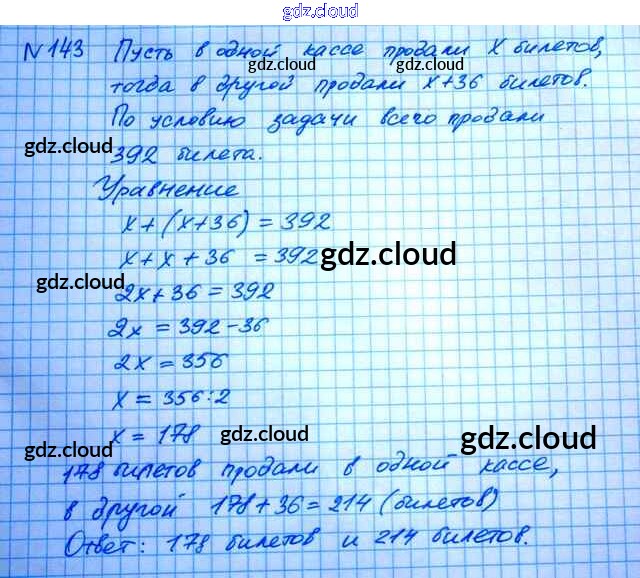 gdz.cloud
N 143 Пусть в одной кассе продали x билетов,
gdz.cloud gdz.cloud
тогда в другой продали x+36 билетов.
По условию задачи всего продали
gdz.cloud
392 билета.
Уравнение
x+(x+36) = 392
x+x+36 = 392
gdz.cloud
gdz.cloud
2x+36 = 392
2x = 392-36
2x = 356
x = 356:2
x = 178
gdz.cloud gdz.cloud gdz.cloud
178 билетов продали в одной кассе,
в другой 178+36 = 214 (билетов)
Ответ: 178 билетов и 214 билетов.